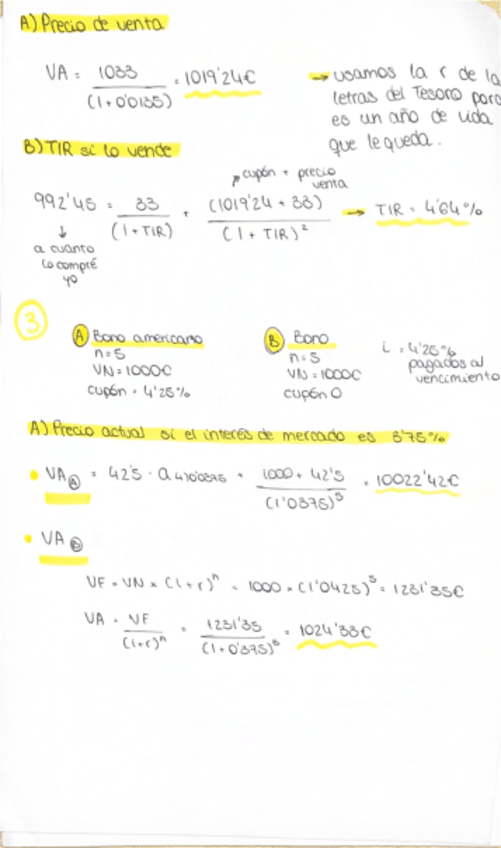 A) Precio de venta
VA = 1033 / (1+0'0135) = 1019'24€ → usamos la r de la
letras del Tesoro porq
es un año de vida
que le queda.
B) TIR si lo vende
cupón + precio
venta
992'45 = 33 / (1+TIR) + (1019'24 + 33) / (1+TIR)² → TIR = 4'64%
↓
a cuanto
lo compré
yo
3
A Bono americano
n=5
VN=1000€
cupón = 4'25%
B Bono
n=5
VN=1000€
cupón 0
i = 4'25%
pagados al
vencimiento
A) Precio actual si el interés de mercado es 3'75%
• VA Ⓐ = 42'5 · a 4 0'0375 + 1000 + 42'5 / (1'0375)⁵ = 10022'42€
• VA Ⓑ
VF = VN × (1+r)ⁿ = 1000 × (1'0425)⁵ = 1231'35€
VA = VF / (1+r)ⁿ = 1231'35 / (1+0'375)⁵ = 1024'33€